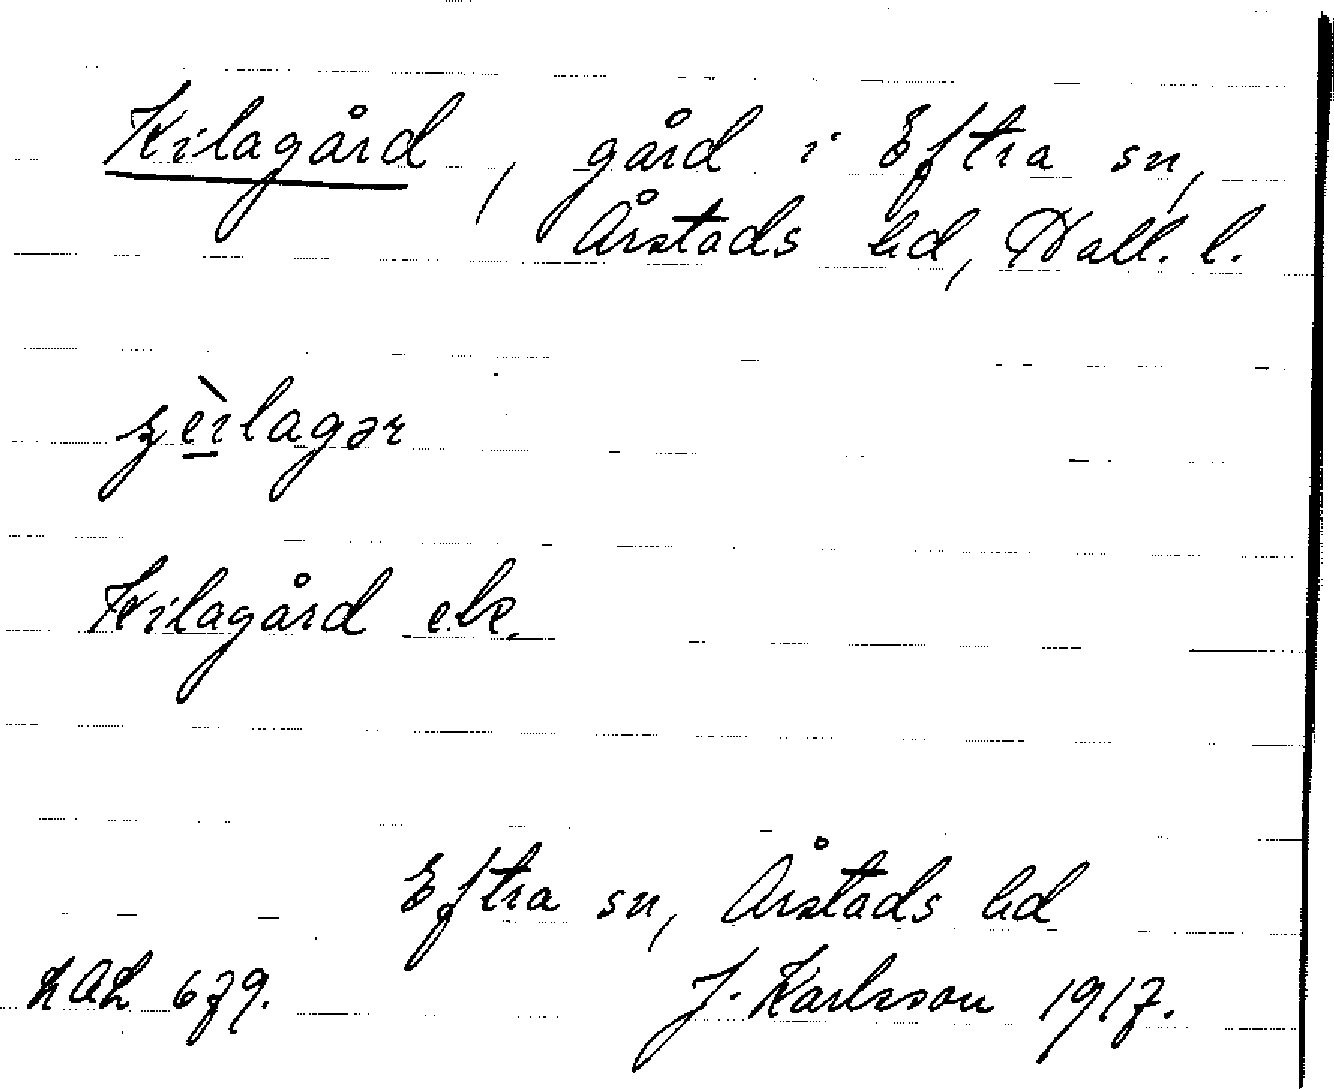 Kilagård, gård i Eftra sn,
Årstads hd, Hall. l.
Kilagård ek.
Eftra sn, Årstads hd
LAL 679. J. Karlsson 1917.